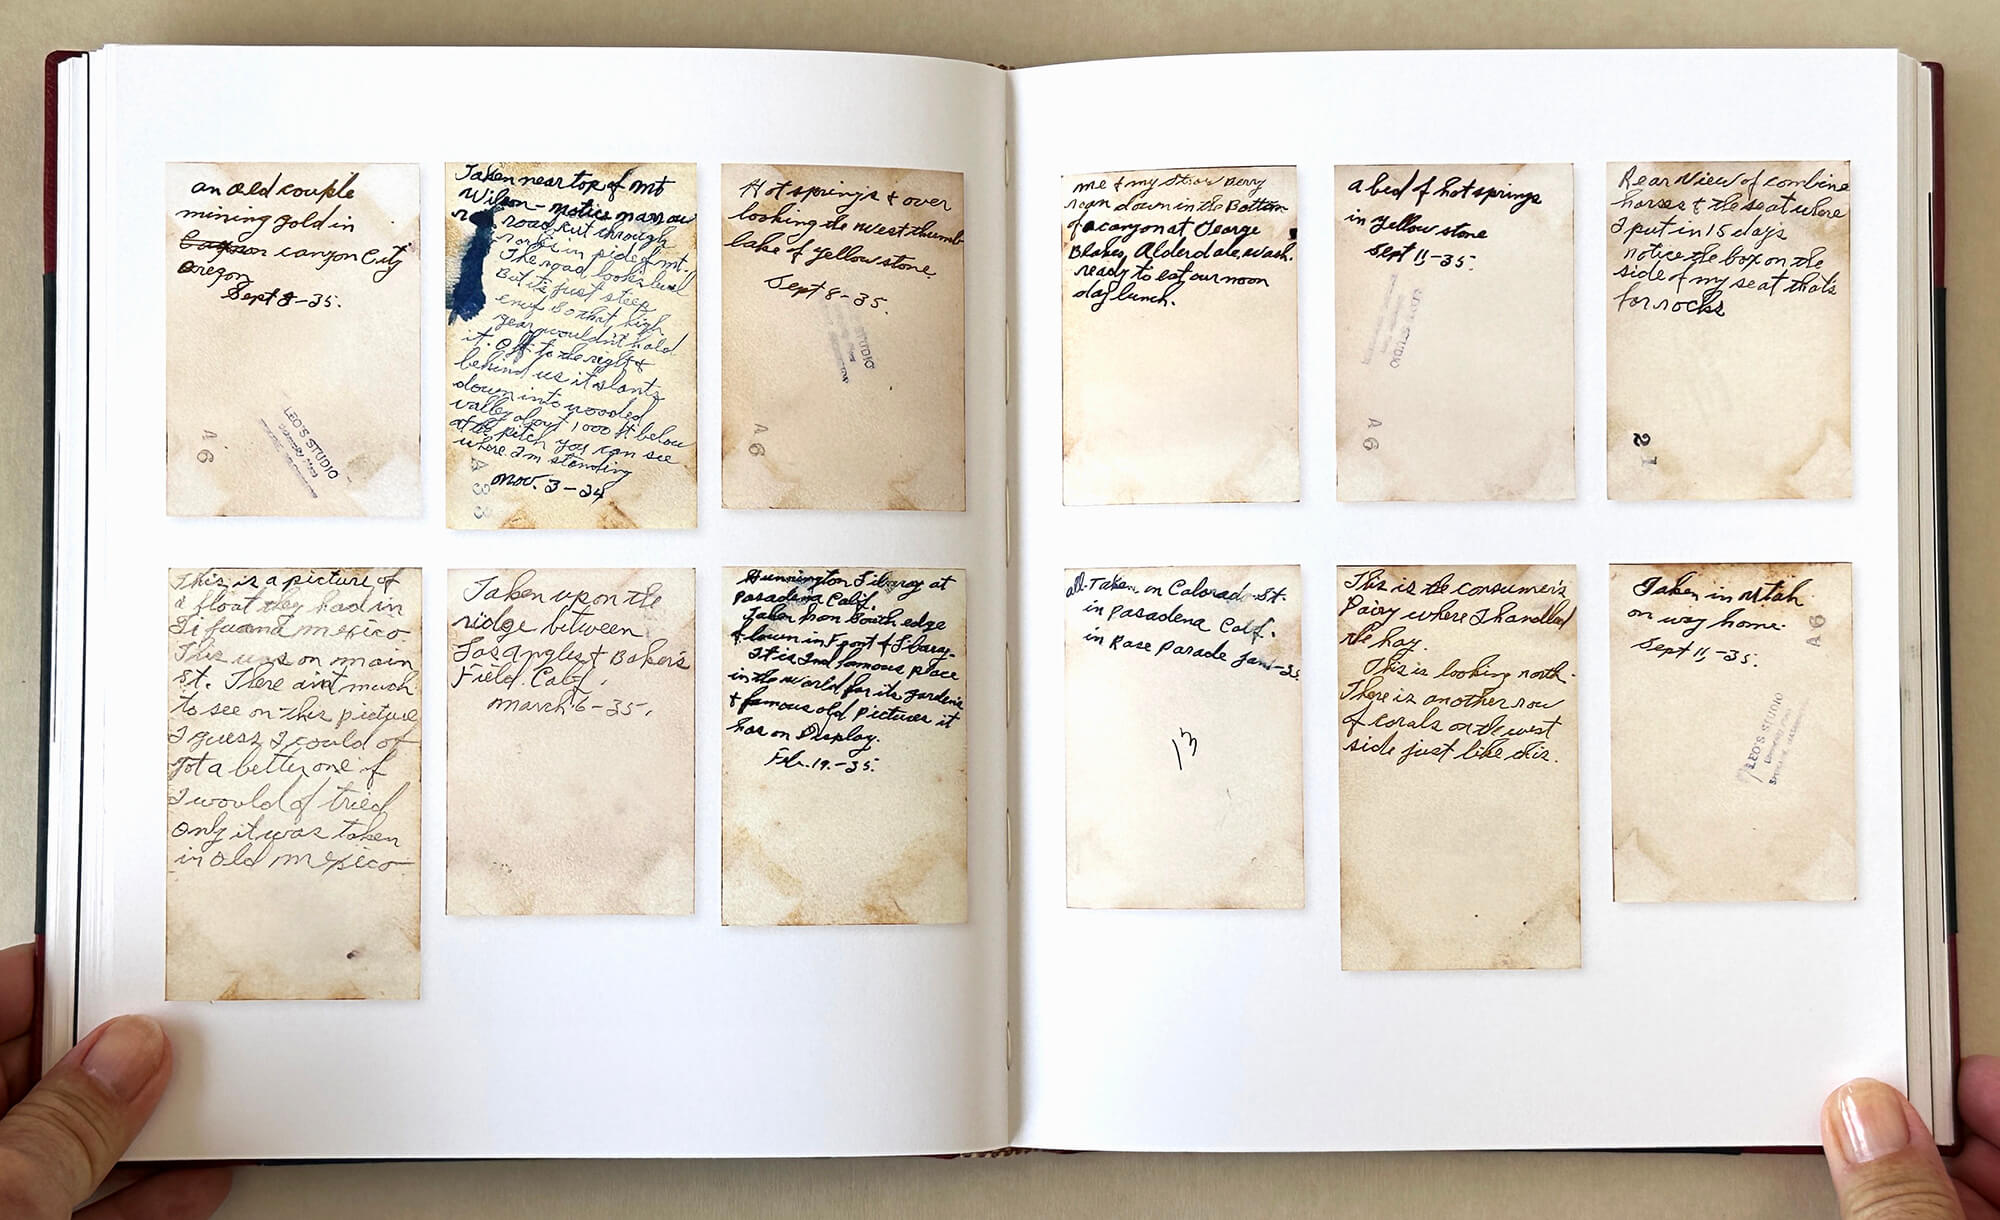 an old couple
mining gold in
canyon City
Oregon
Sept 8-35.
A 6
LEO'S STUDIO
Taken near top of mt
Wilson - notice narrow
road cut through
rocks in side of mt.
The road looks level
But it's just steep
enuf so that high
gear wouldn't hold
it. Off to the right &
behind us it slants
down into wooded
valley about 1,000 ft below
at the pitch you can see
where I'm standing
nov. 3-34
A 33
Hot springs & over
looking the west thumb
lake of yellowstone.
Sept 8-35.
STUDIO
A 6
This is a picture of
a float they had in
Tifuana mexico
This was on main
st. There aint much
to see on this picture
I guess I could of
got a better one if
I would of tried
only it was taken
in old mexico
Taken up on the
ridge between
Los Angles & Baker's
Field. Calif.
march 6-35.
Hunnington Library at
Pasadena Calif.
Taken from South edge
& lawn in front of Library-
It is 2nd famous place
in the world for its gardens
& famous old pictures it
has on Display.
Feb. 19.-35.
me & my Straw Berry
roan down in the Bottom
of a canyon at George
Blakes, Alderdale, wash.
ready to eat our noon
day lunch.
a bed of hot springs
in yellow stone
Sept 11,-35.
LEO'S STUDIO
A 6
Rear View of combine
horses & the seat where
I put in 15 days
notice the box on the
side of my seat that's
for rocks
21
all. Taken on Colorado St.
in Pasadena Calif.
in Rose Parade Jan1-35
13
This is the consumer's
Dairy where I handled
the hay.
This is looking north.
There is another row
of corals on the west
side just like this.
Taken in utah
on way home.
Sept 11,-35.
A 6
LEO'S STUDIO